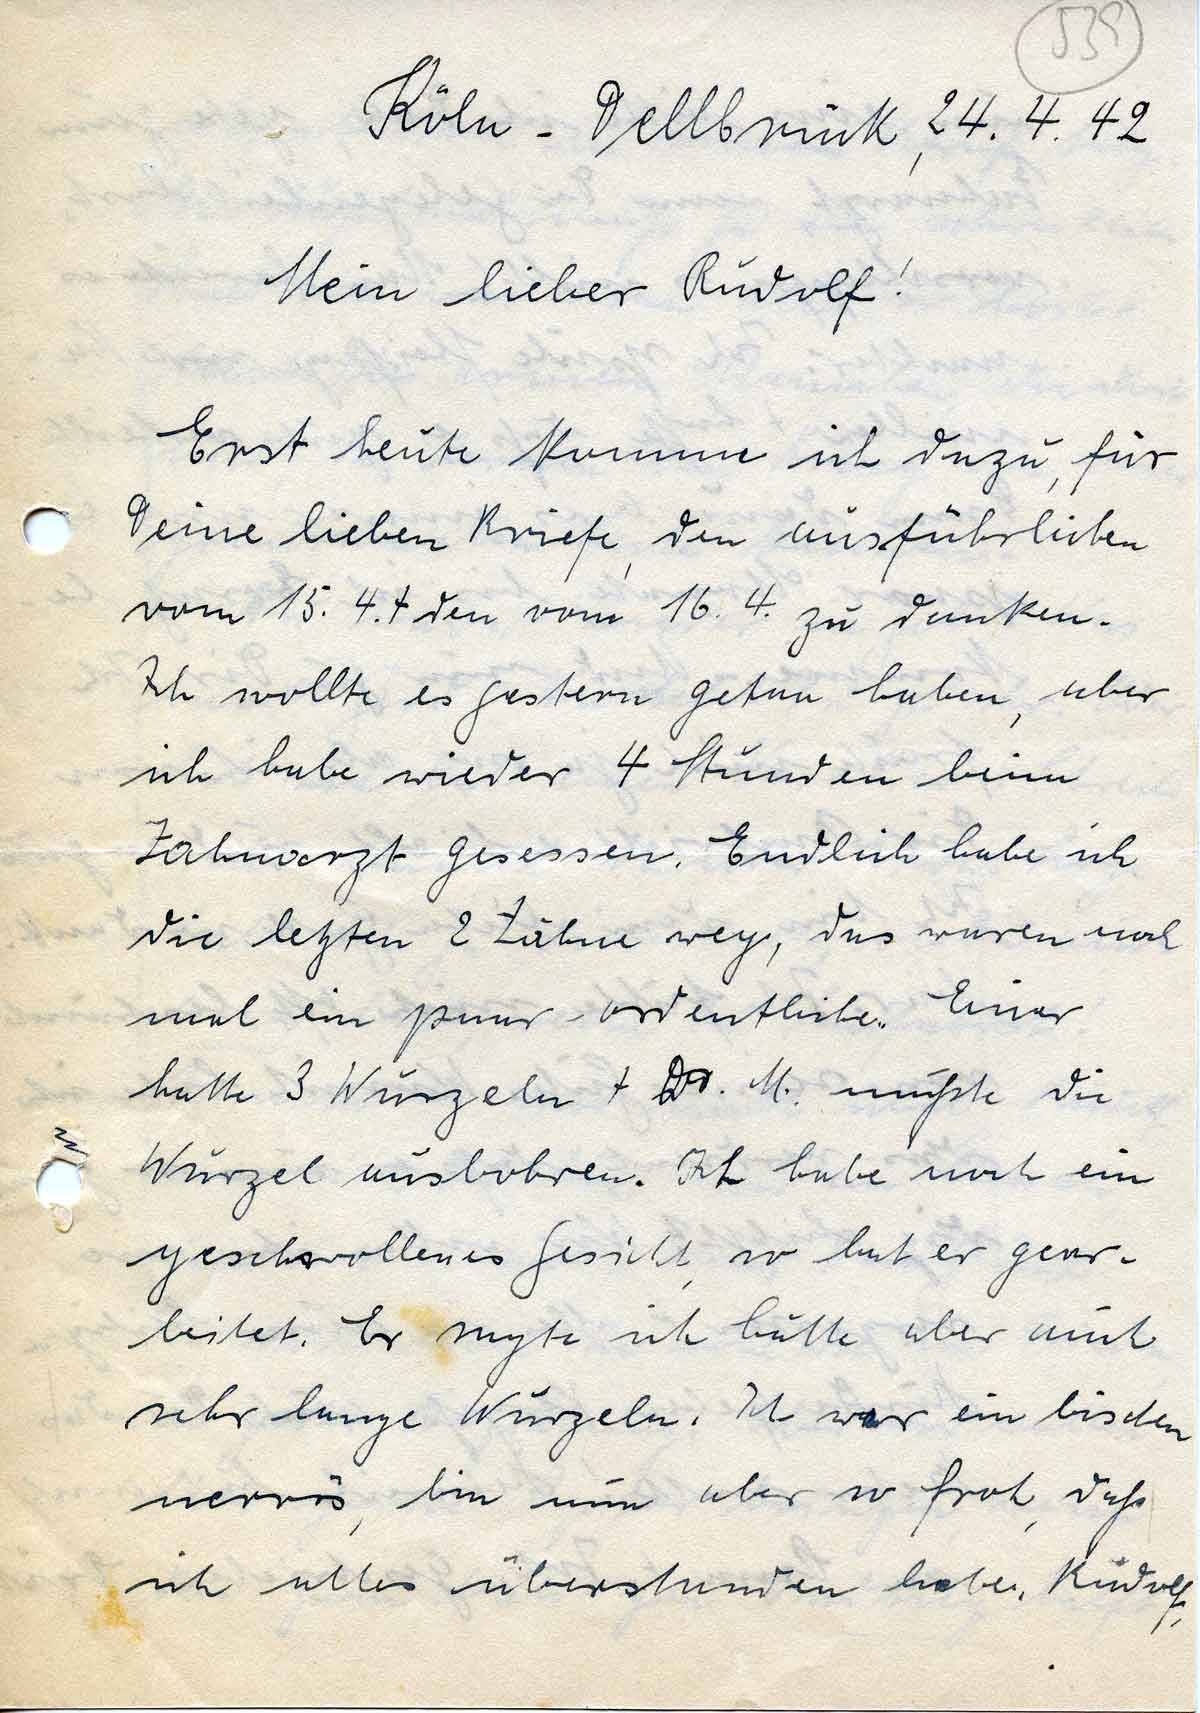 539
Köln - Dellbrück, 24. 4. 42
Mein lieber Rudolf!
Erst heute komme ich dazu, für
Deine lieben Briefe, den ausführlichen
vom 15. 4. + den vom 16. 4. zu danken.
Ich wollte es gestern getan haben, aber
ich habe wieder 4 Stunden beim
Zahnarzt gesessen. Endlich habe ich
die letzten 2 Zähne weg, das waren noch
mal ein paar ordentliche. Einer
hatte 3 Wurzeln + Dr. M. mußte die
Wurzel ausbohren. Ich habe noch ein
geschwollenes Gesicht, so hat er gear-
beitet. Er sagte ich hätte aber auch
sehr lange Wurzeln. Ich war ein bischen
nervös, bin nun aber so froh, daß
ich alles überstanden habe. Rudolf,